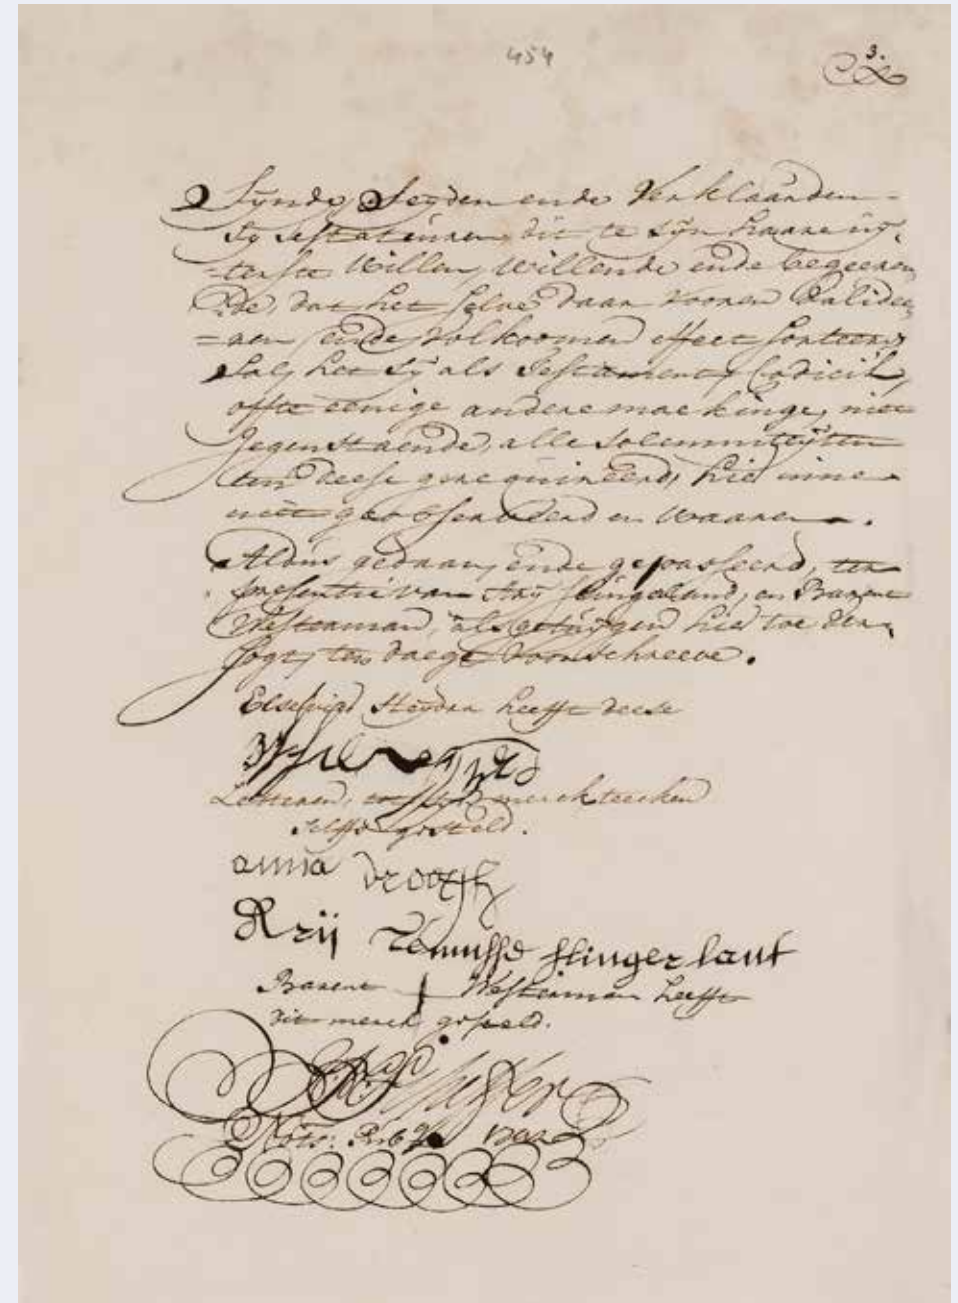 454
3.
Synde, Seyden ende verklaarden
sy testatricen, dit te syn haare uÿ„
„terste Willen, willende ende begeeren„
„de, dat het selve daar vooren valideer„
=ren ende volkoomen effect sorteeren
sal, het sy als Testament, Codicil,
ofte eenige andere maekinge, niet
Jegenstaende, alle solemniteÿten
ten deese gerequireerd, hier inne
niet geobserveerd en waaren.
Aldus gedaan, ende gepasseerd, ter
presentie van Arÿ Slingeland, en Barent
Westerman, als getuÿgen hier toe
ten daege voorschreeve.
heefft deese
Letteren, merckteecken
selffs gesteld.
anna
Arij Teunisse slingerlant
Barent Westerman heefft
dit merck gesteld.
Nots: Publ